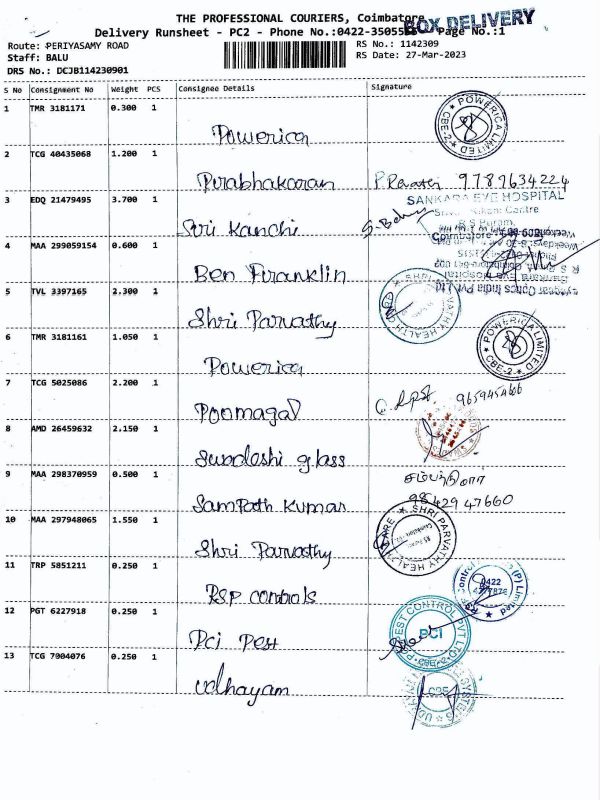 THE PROFESSIONAL COURIERS, Coimbatore
BOX DELIVERY
Delivery Runsheet - PC2 - Phone No.:0422-350555 Page No.:1
Route: PERIYASAMY ROAD RS No.: 1142309
Staff: BALU RS Date: 27-Mar-2023
DRS No.: DCJB114230901
S No Consignment No Weight PCS Consignee Details Signature
1 TMR 3181171 0.300 1
Powerica
POWERICA LIMITED CBE-2
2 TCG 40435068 1.200 1
Prabhakaran P. Revathi 9789634224
3 EDQ 21479495 3.700 1
SANKARA EYE HOSPITAL
Sri Kanchi
4 MAA 299059154 0.600 1
Ben Franklin
5 TVL 3397165 2.300 1
Shri Parvathy
SHRI PARVATHY HEALTH CARE
6 TMR 3181161 1.050 1
Powerica
POWERICA LIMITED CBE-2
7 TCG 5025086 2.200 1
Poomagal
8 AMD 26459632 2.150 1
Swadeshi glass
9 MAA 298370959 0.500 1
Sampath Kumar
98429 47660
10 MAA 297948065 1.550 1
Shri Parvathy
SHRI PARVATHY HEALTH CARE
11 TRP 5851211 0.250 1
RSP controls
0422
12 PGT 6227918 0.250 1
Pci Pest
PEST CONTROL PVT LTD
PCI
13 TCG 7004076 0.250 1
Udhayam